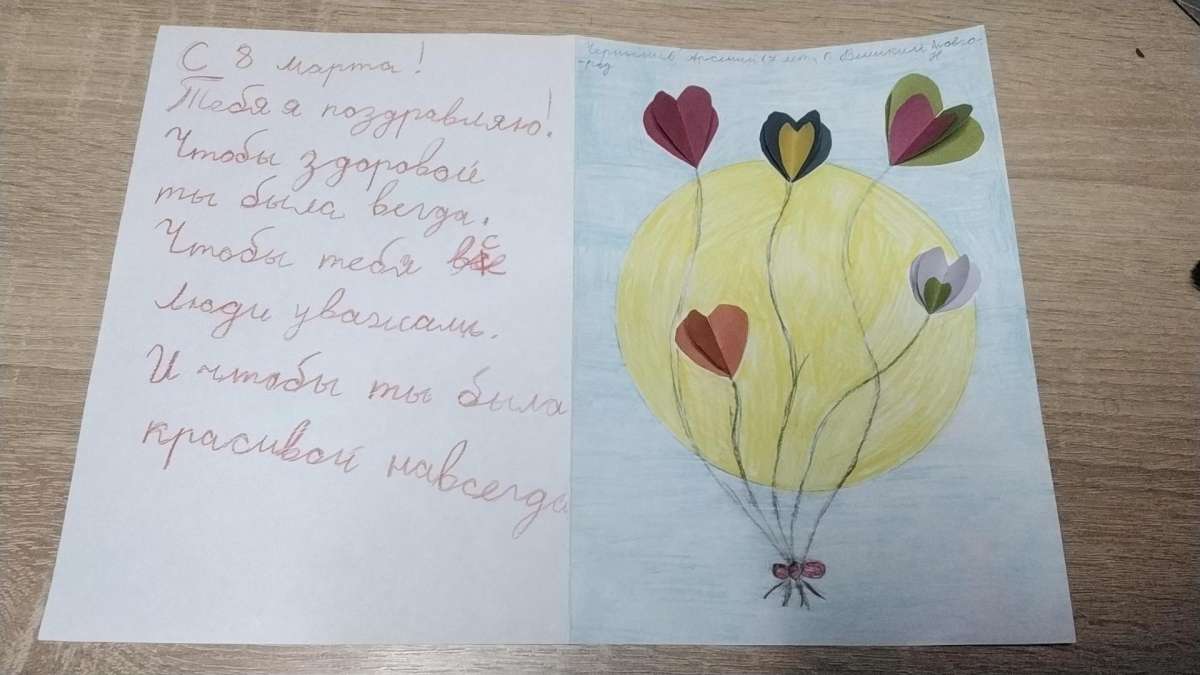 С 8 марта!
Тебя я поздравляю!
Чтобы здоровой
ты была вегда.
Чтобы тебя все
люди уважали.
И чтобы ты была
красивой навсегда
Арсений 17 лет, г. Великий Новго-
-род